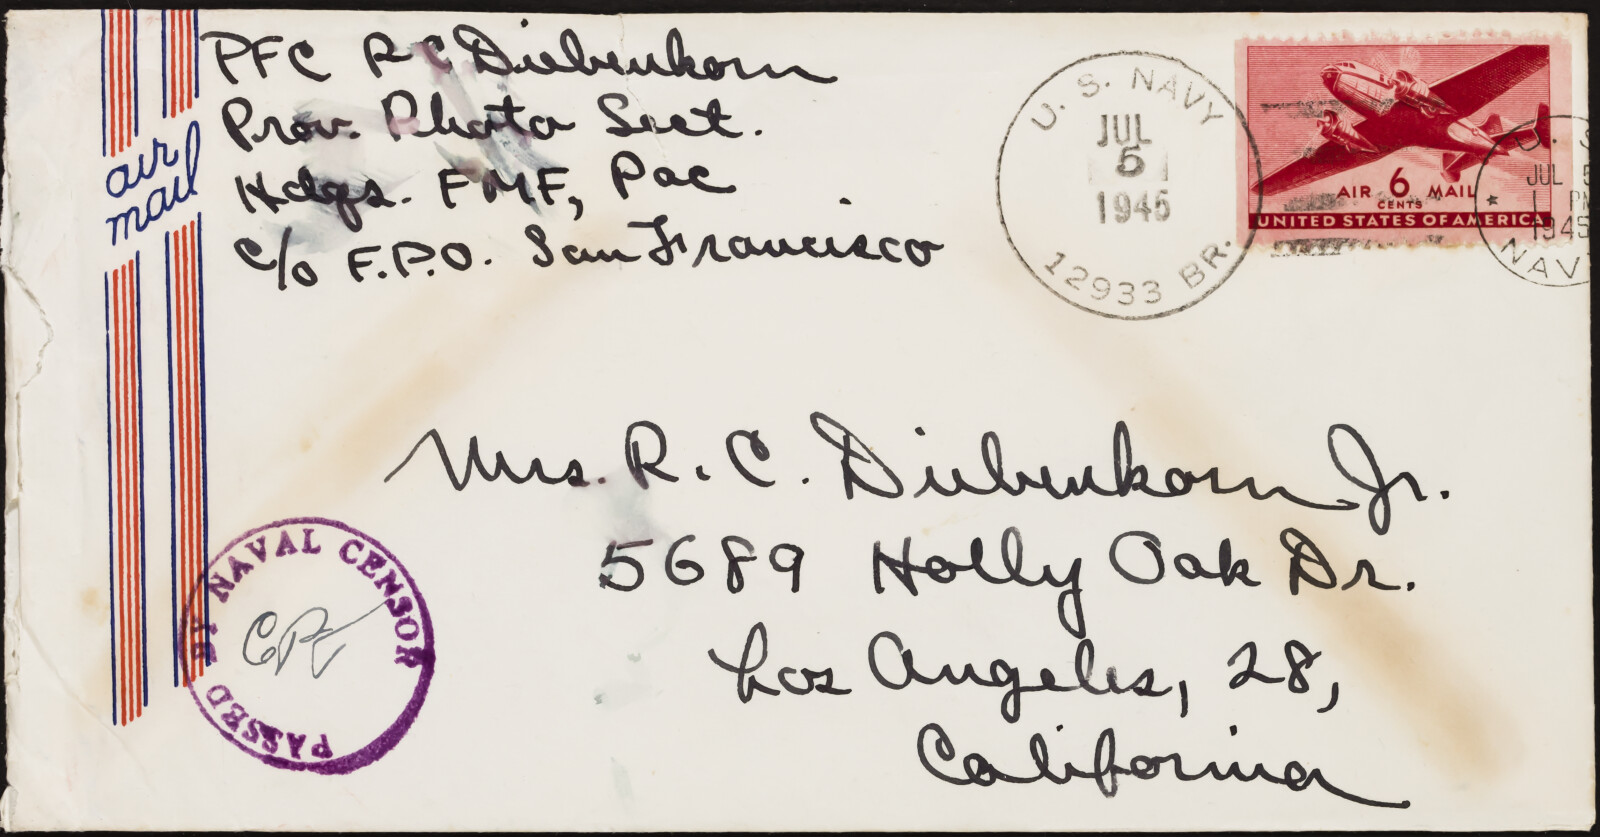 PFC R C Diebenkorn
Prov. Photo Sect.
Hdqs. FMF, Pac
c/o F.P.O. San Francisco
air
mail
U. S. NAVY
JUL
5
1945
12933 BR.
AIR 6 MAIL
CENTS
UNITED STATES OF AMERICA
U. S.
JUL 5
1 PM
1945
NAVY
Mrs. R. C. Diebenkorn Jr.
5689 Holly Oak Dr.
Los Angeles, 28,
California
PASSED BY NAVAL CENSOR